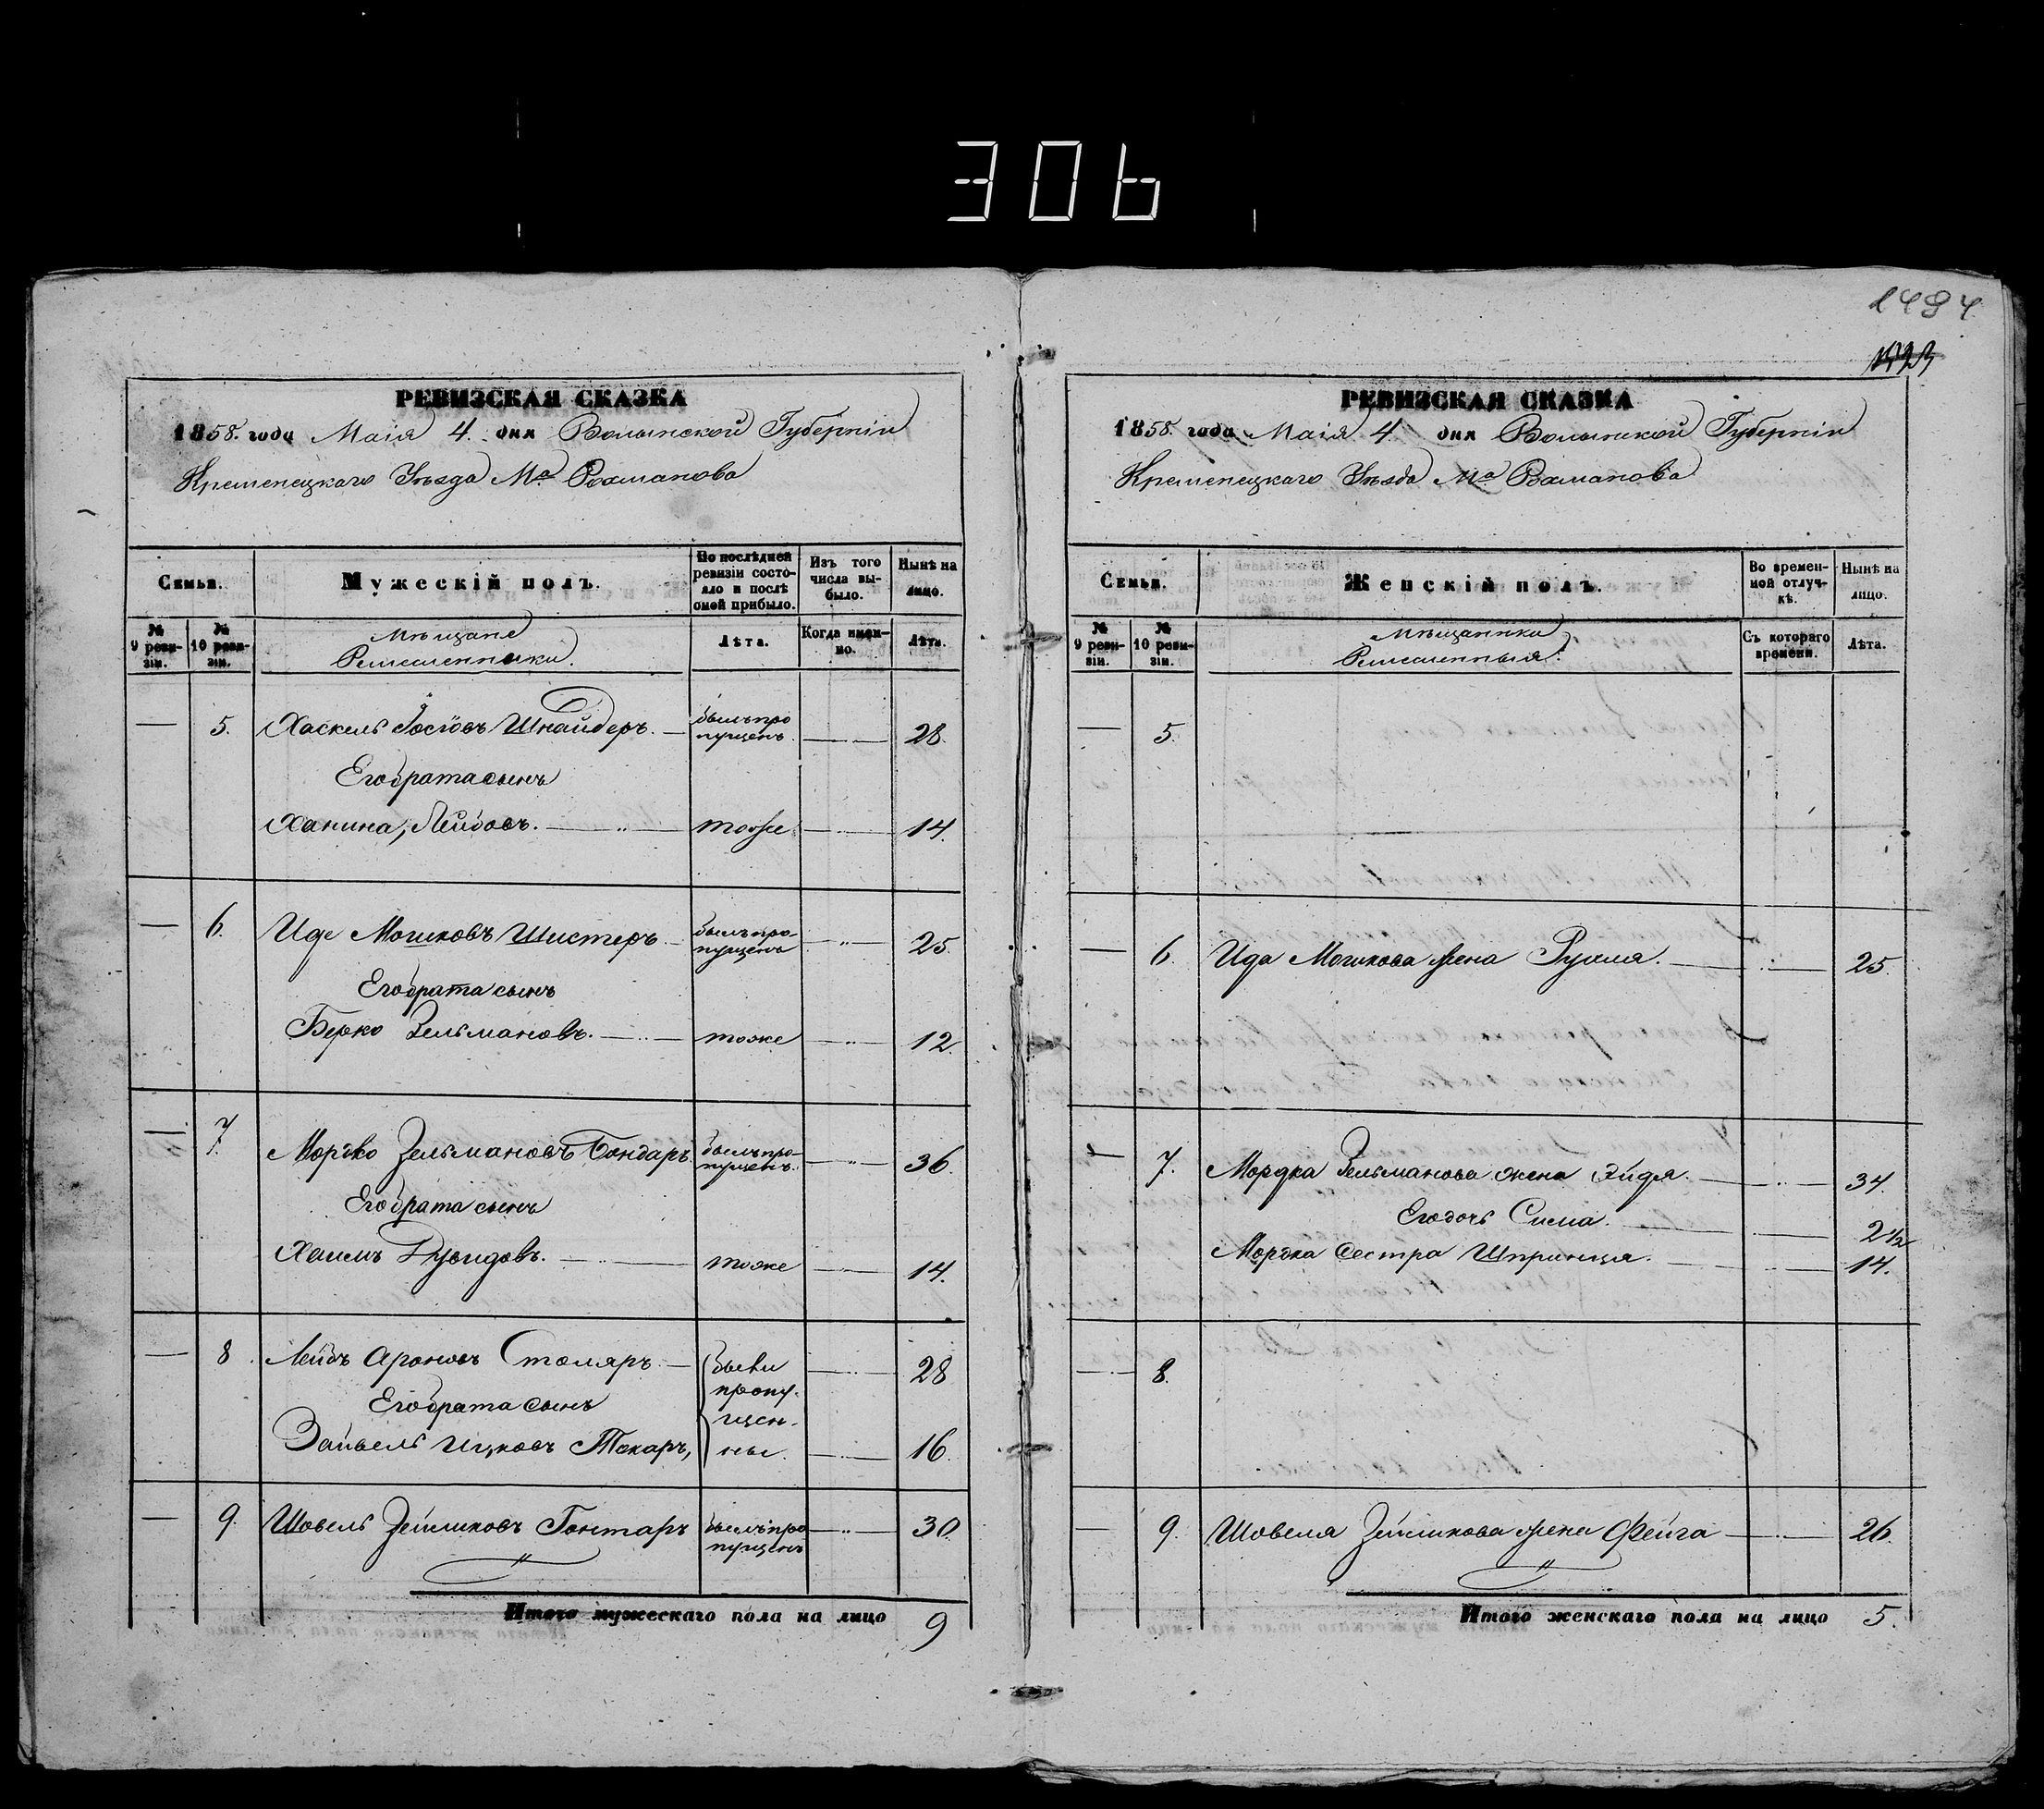 306
1484
1523
РЕВИЗСКАЯ СКАЗКА
1858. года Маія 4. дня Волынской Губерніи
Кременецкаго Уѣзда Мᵃ Рахманова
Семьи.
Мужескій полъ.
По послѣдней ревизіи состояло и послѣ оной прибыло.
Изъ того числа выбыло.
Нынѣ на лицо.
№ 9 ревизіи.
№ 10 ревизіи.
Мѣщане
Ремесленники.
Лѣта.
Когда именно.
Лѣта.
— 5. Хаскель Іосіовъ Шнайдеръ. — былъ пропущенъ. — 28.
Его брата сынъ
Ханина, Лейбовъ. — " — тоже — 14.
— 6. Иде Мошковъ Шистеръ — былъ пропущенъ — " — 25.
Его брата сынъ
Берко Зельмановъ. — " — тоже — " — 12.
— 7. Мордко Зельмановъ Бондаръ. былъ пропущенъ. — " — 36.
Его брата сынъ
Хаимъ — " — тоже — 14.
— 8. Лейбъ Ароновъ Столяръ. — были пропущенны. — 28
Его брата сынъ
Зайвель Ицковъ Токаръ, — 16.
— 9. Шовель Зейликовъ Гонтаръ былъ пропущенъ — " — 30.
Итого мужескаго пола на лицо 9
РЕВИЗСКАЯ СКАЗКА
1858. года Маія 4. дня Волынской Губерніи
Кременецкаго Уѣзда Мᵃ Рахманова
Семьи.
Женскій полъ.
Во временной отлучкѣ.
Нынѣ на лицо.
№ 9 ревизіи.
№ 10 ревизіи.
Мѣщанки
Ремесленныя.
Съ котораго времени.
Лѣта.
— 5.
— 6. Ида Мошкова жена Рухля. — 25.
— 7. Мордка Зельманова жена Эйдя. — 34.
Его дочь Сима. — 2½
Мордка сестра Шпринця. — 14.
— 8.
— 9. Шовеля Зейликова жена Фейга — 26.
Итого женскаго пола на лицо 5.